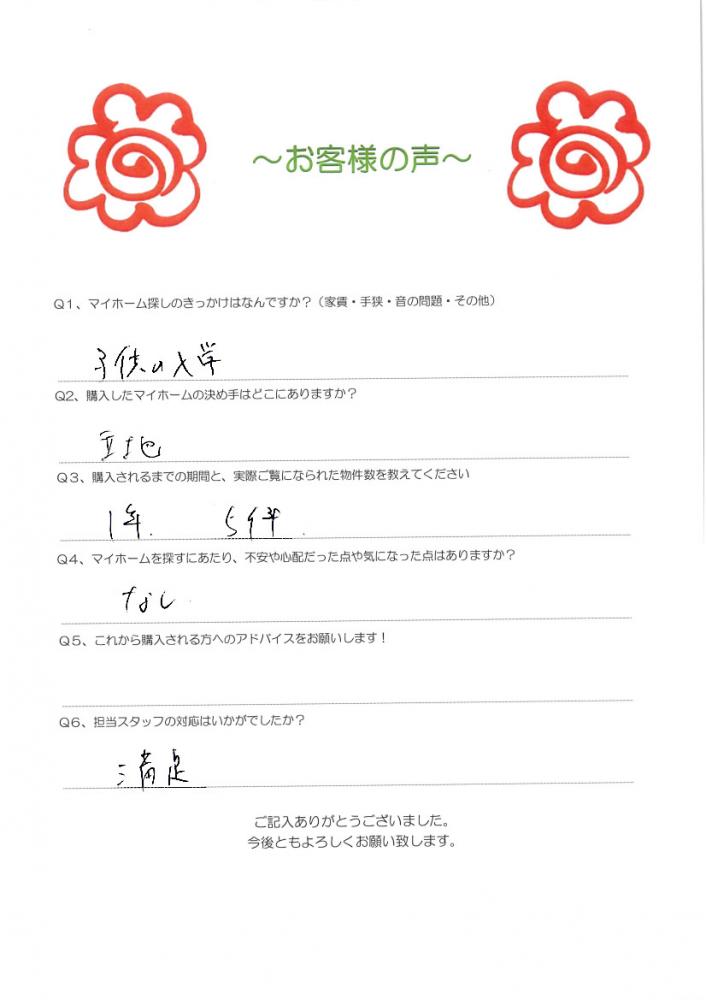 ～お客様の声～
Q1、マイホーム探しのきっかけはなんですか？（家賃・手狭・音の問題・その他）
子供の入学
Q2、購入したマイホームの決め手はどこにありますか？
立地
Q3、購入されるまでの期間と、実際ご覧になられた物件数を教えてください
1年. 5件.
Q4、マイホームを探すにあたり、不安や心配だった点や気になった点はありますか？
なし
Q5、これから購入される方へのアドバイスをお願いします！
Q6、担当スタッフの対応はいかがでしたか？
満足
ご記入ありがとうございました。
今後ともよろしくお願い致します。